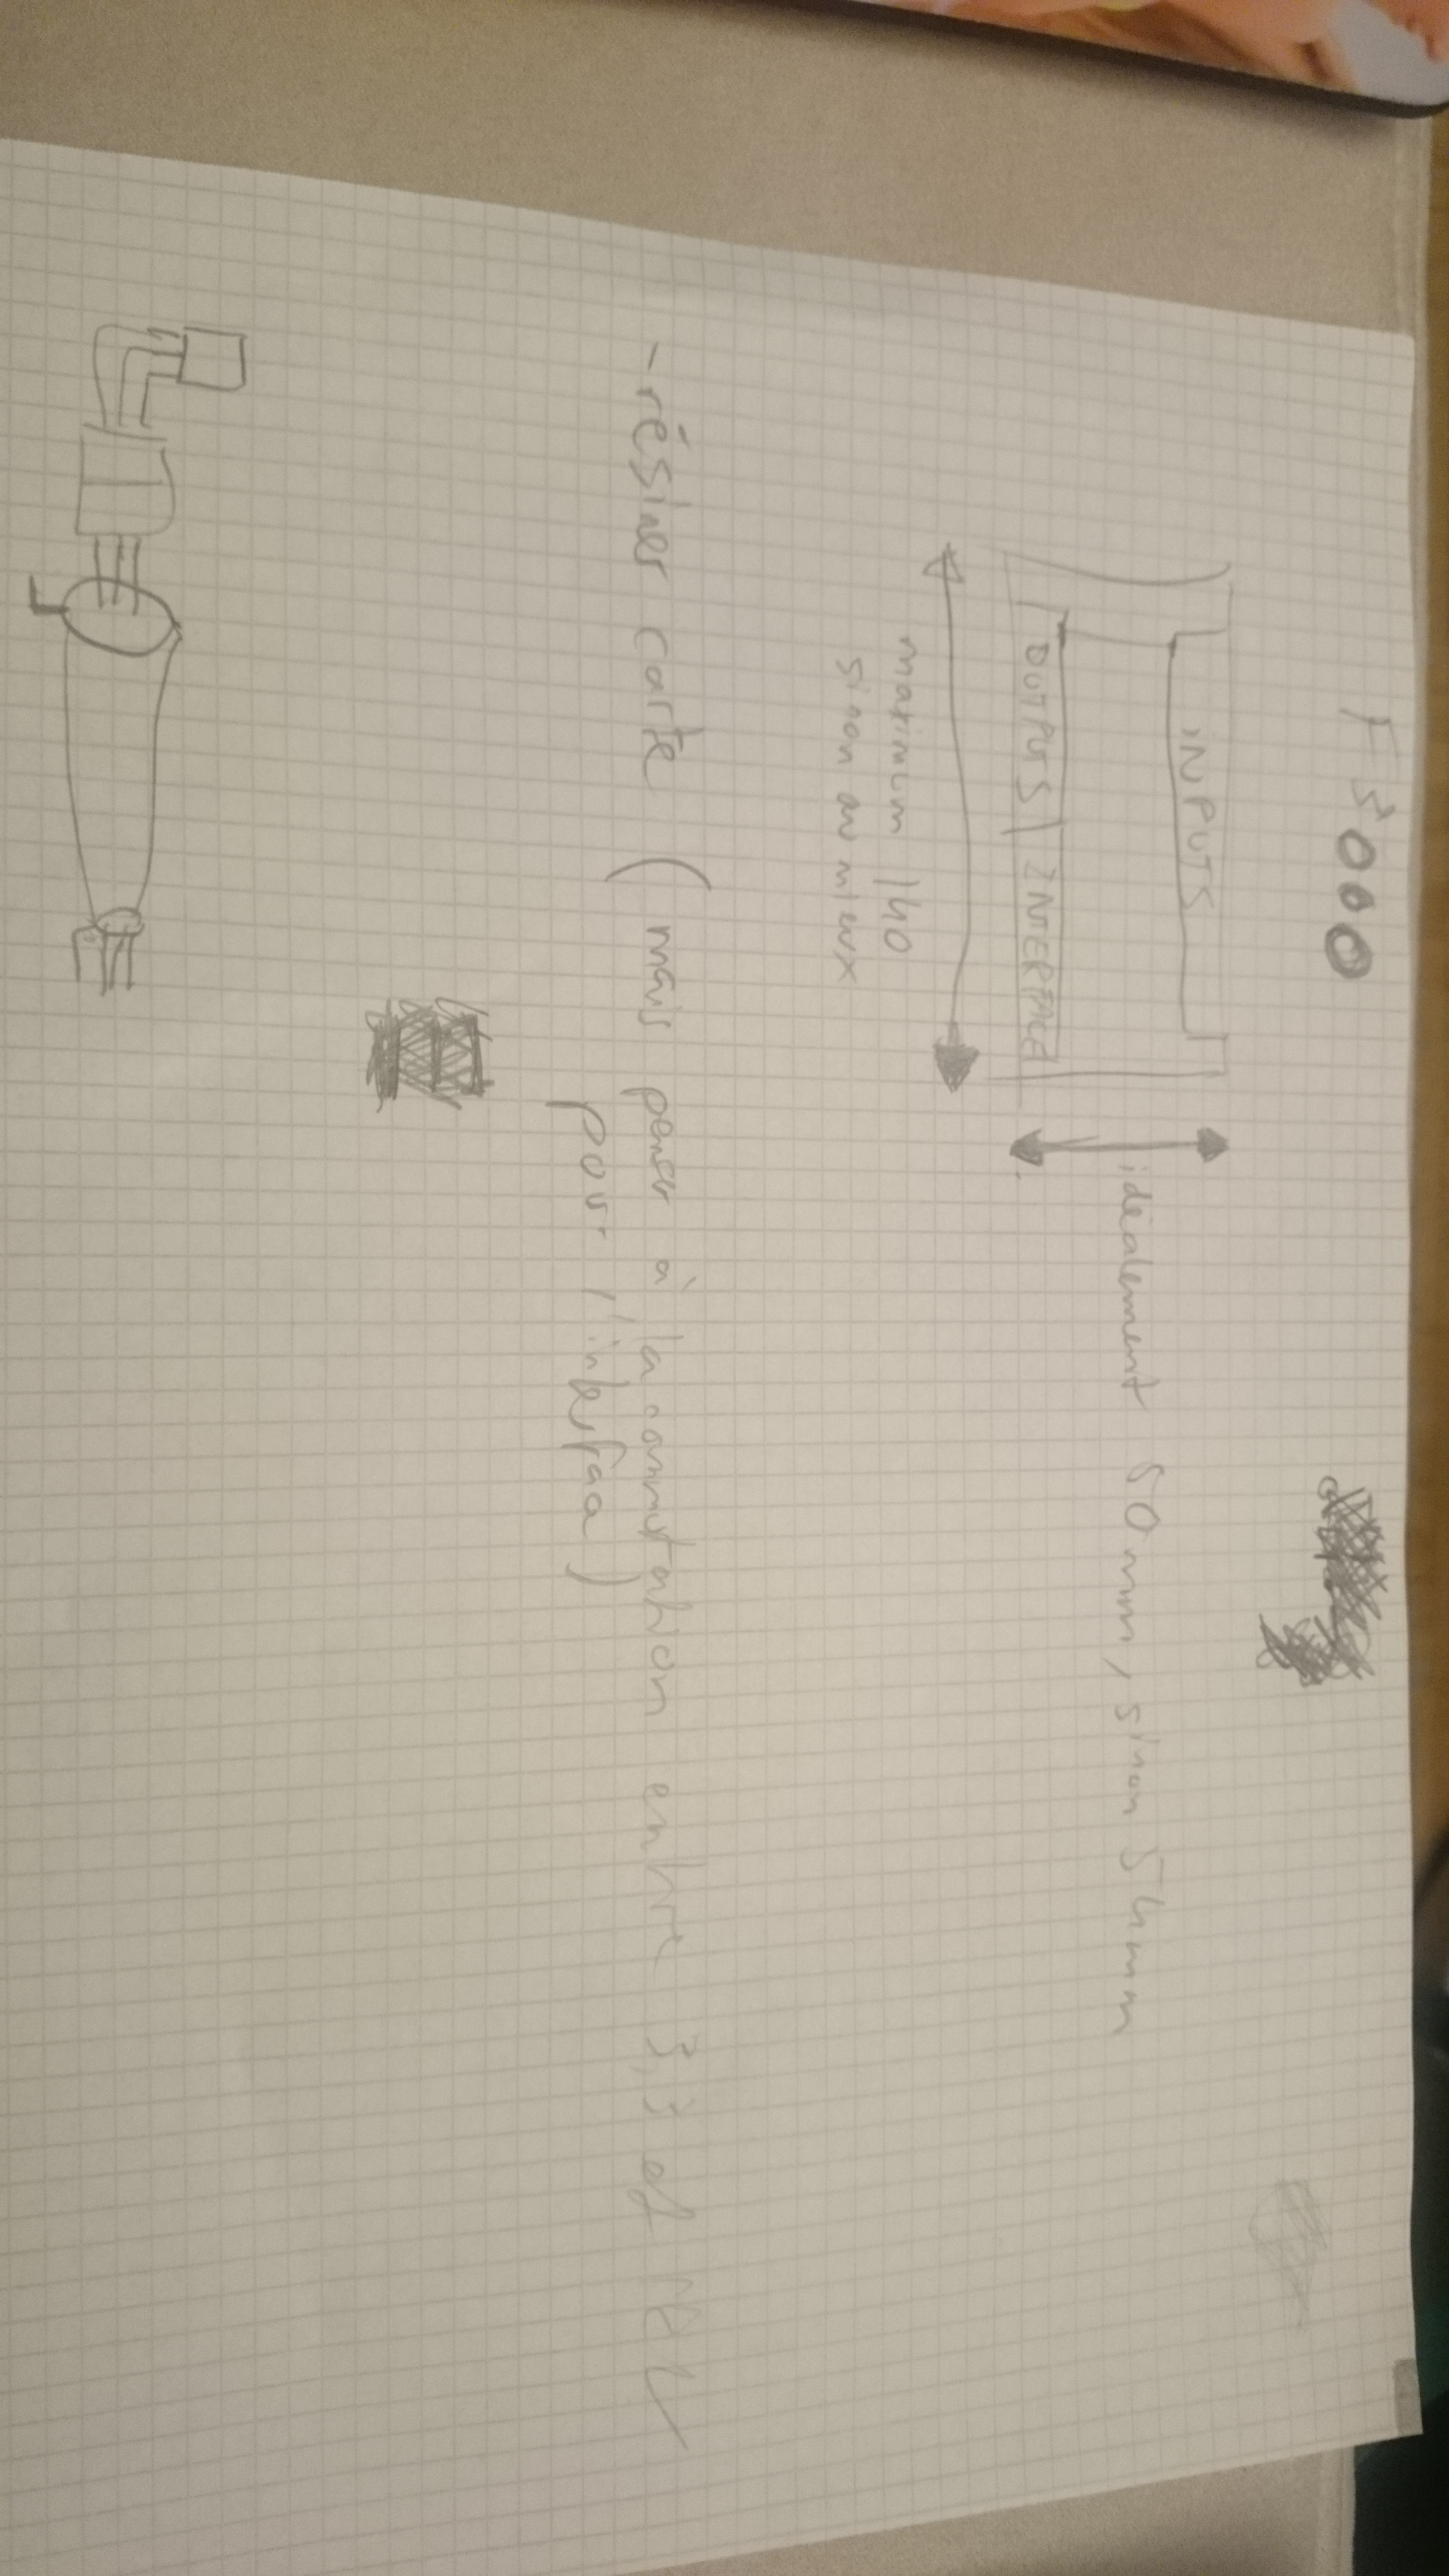 F3000
INPUTS
OUTPUTS | INTERFACE
idéalement 50mm, sinon 54mm
maximum 140
sinon au mieux
- résiner carte (mais penser à la commutation entre 3,3 et
pour l'interface)